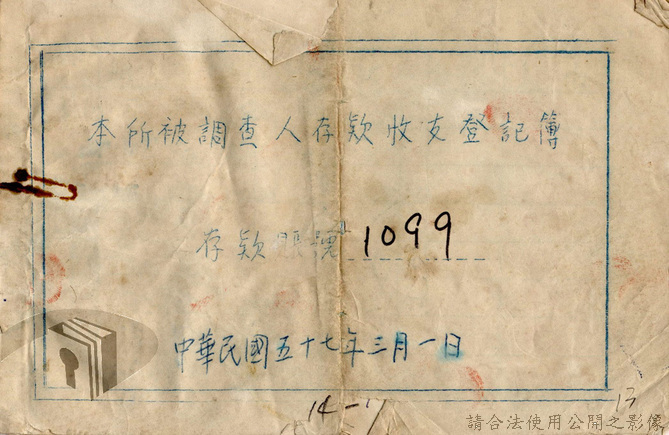 本所被調查人存款收支登記簿
存款賬號 1099
中華民國五十七年三月一日
14-17
13
請合法使用公開之影像